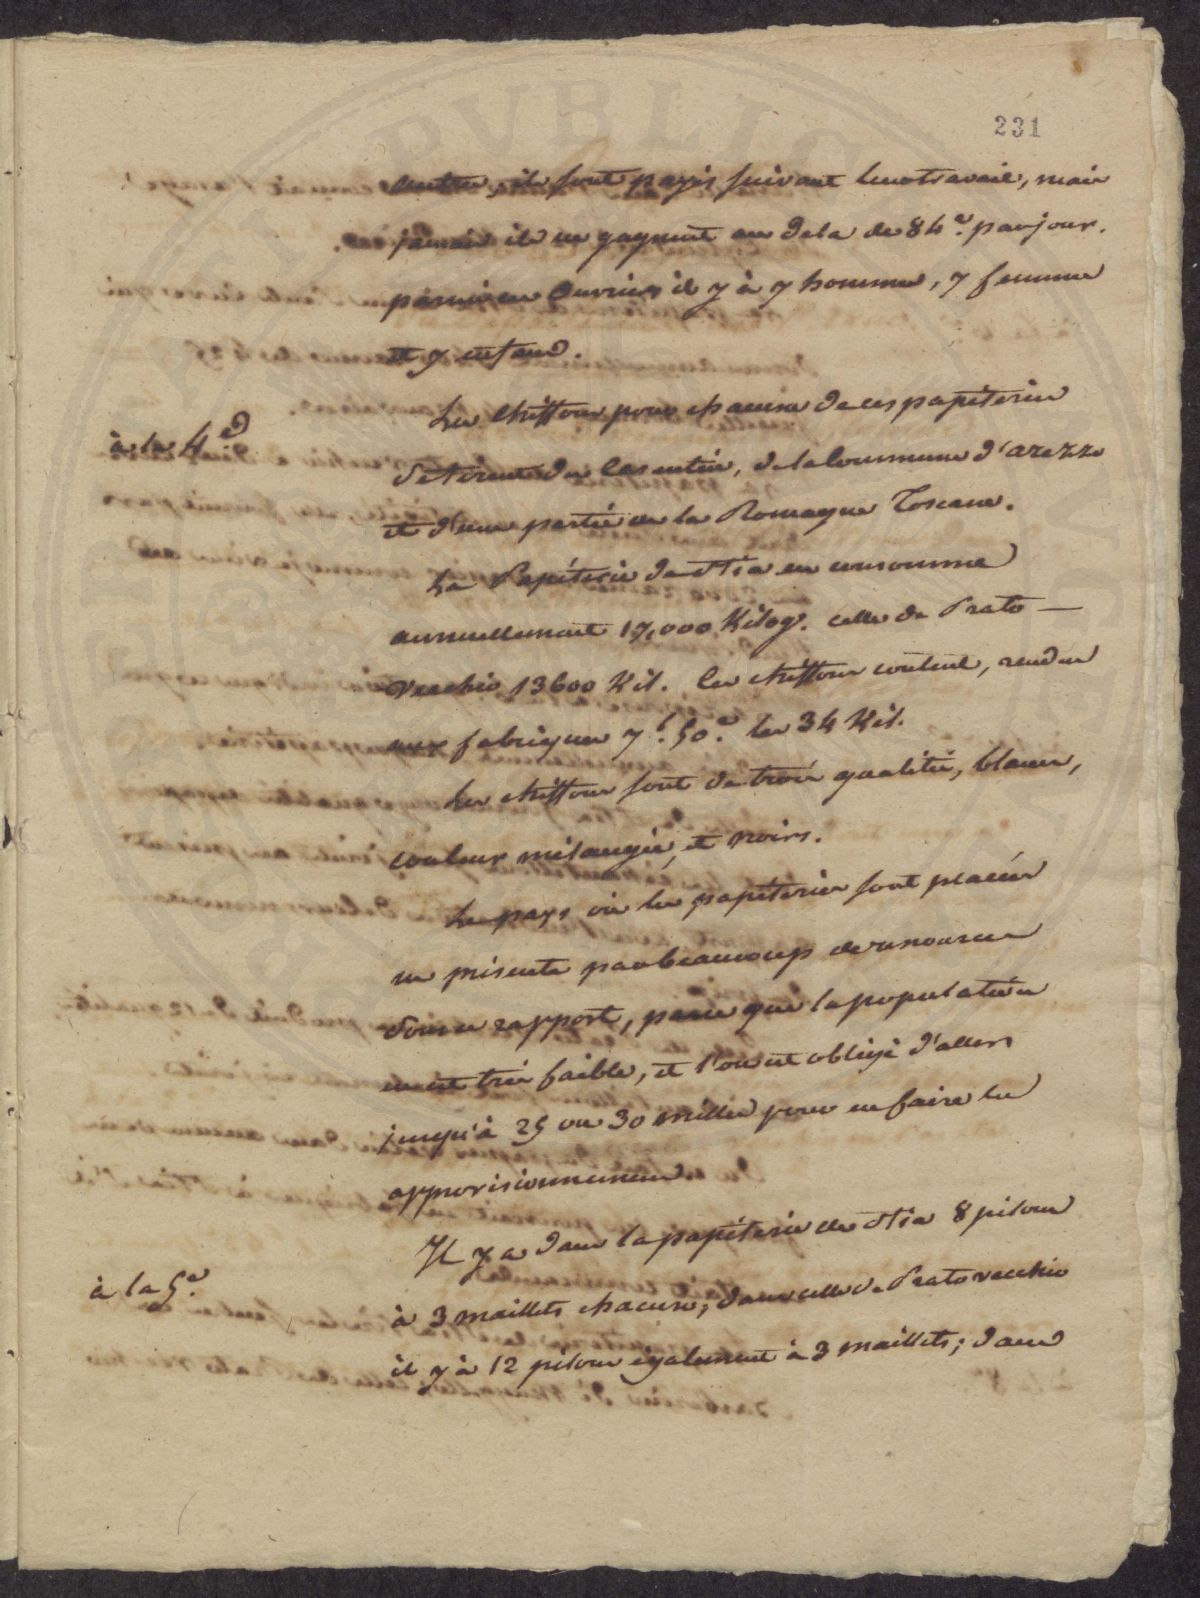 231
autres, ils sont payés suivant leur travail, mais
jamais ils ne gagnent au dela de 84.c par jour.
parmi ces Ouvriers il y à 7 hommes, 7 femmes
et 7 enfans.
à la 4.e
Les Chiffons pour chacune de ces papéteries
se tirent du Casentin, de la Commune d'arezzo
et d'une partie de la Romagne Toscane.
La Papéterie de Stia en consomme
annuellement 17,000 Kilog. celle de Prato-
vecchio 13600 Kil. Les chiffons coutent, rendus
aux fabriques 7.f 50.c les 34 Kil.
Les chiffons sont de trois qualités, blancs,
couleur mélangée, et noirs.
Le pays où les papéteries sont placées
ne présente pas beaucoup de ressources
sous ce rapport, parce que la population
en est très faible, et l'on est obligé d'aller
jusqu'à 25 ou 30 milles pour en faire les
approvisionnemens
à la 5.e
Il y a dans la papéterie de Stia 8 pilons
à 3 maillets chacuns; dans celle de Pratovecchio
il y à 12 pilons également à 3 maillets; dans